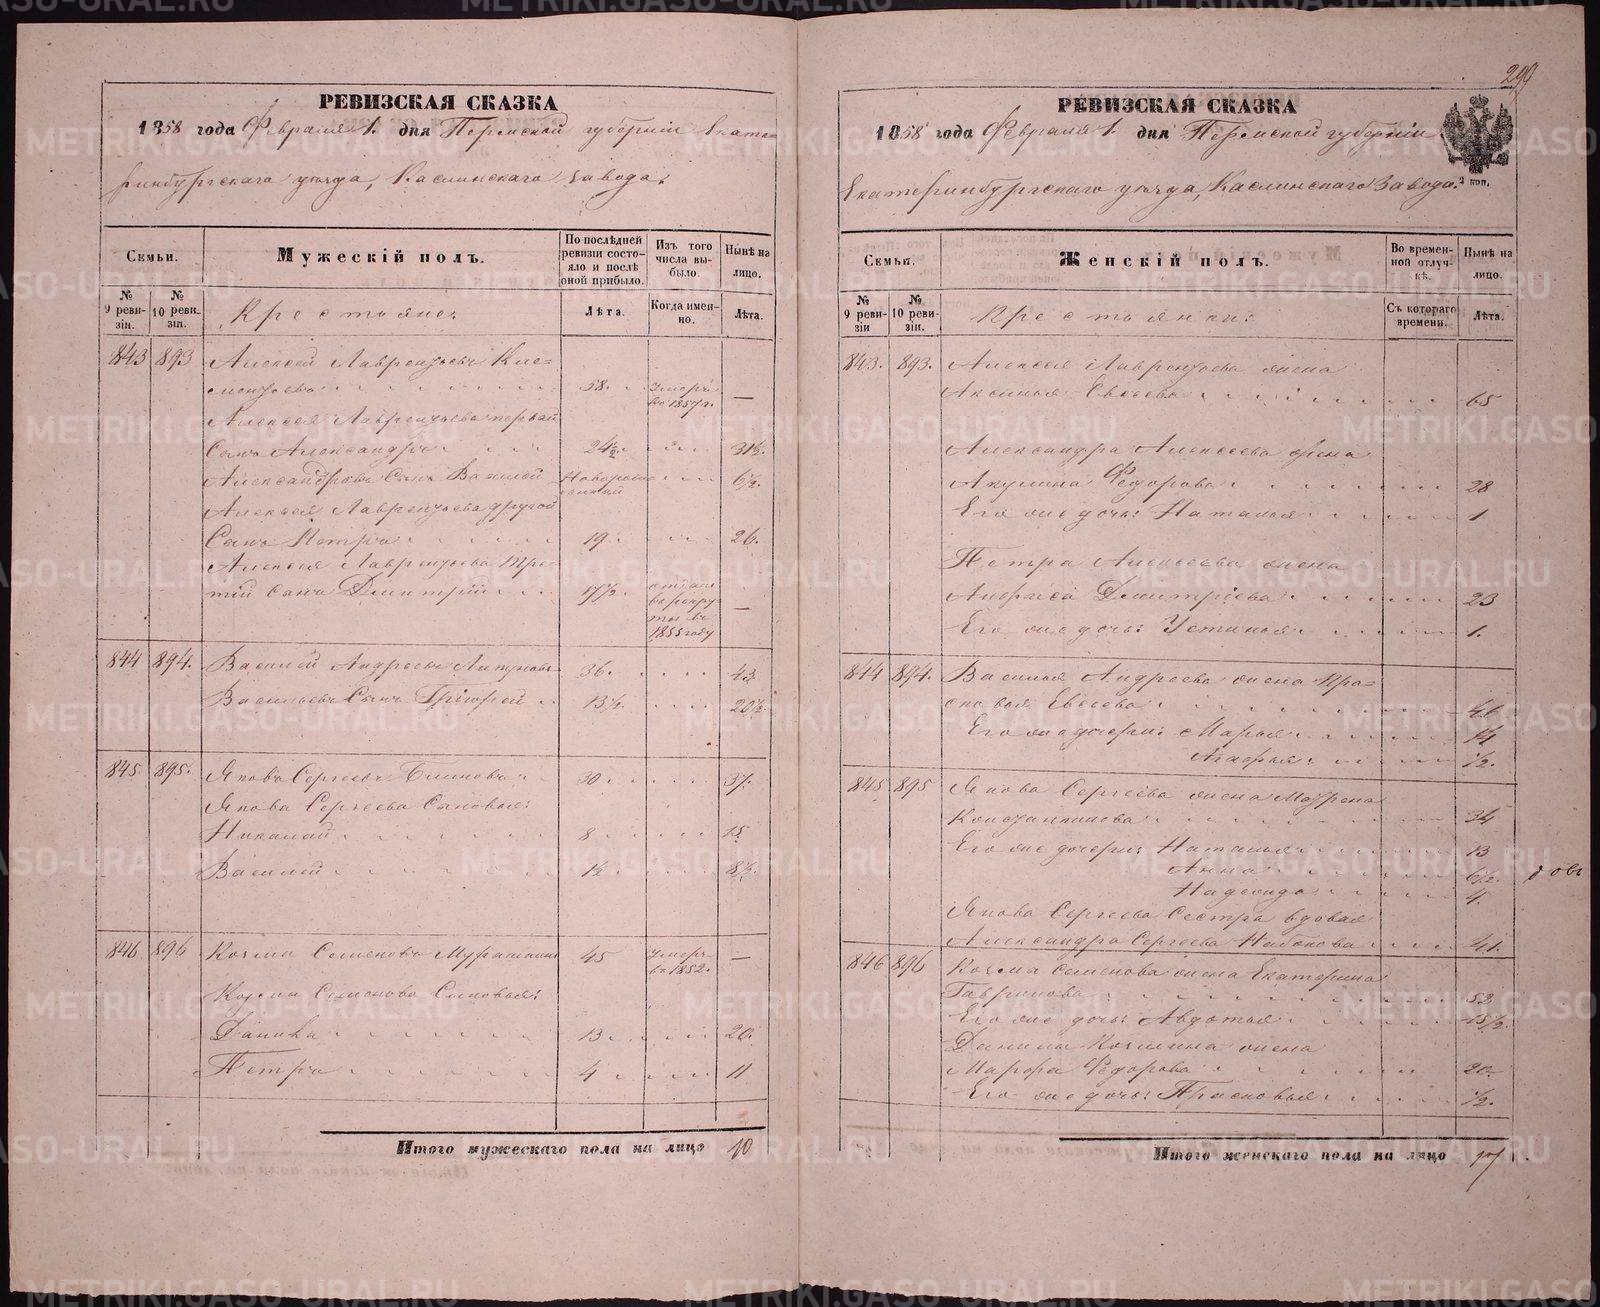 РЕВИЗСКАЯ СКАЗКА
1858 года Февраля 1. дня Пермской губернии Екате-
ринбургскаго уѣзда, Каслинскаго завода.
Семьи.
Мужескій полъ.
По послѣдней ревизіи состояло и послѣ оной прибыло.
Изъ того числа выбыло.
Нынѣ на лицо.
№ 9 ревизіи.
№ 10 ревизіи.
Крестьяне.
Лѣта.
Когда именно.
Лѣта.
843 893 Алексей Лаврентьевъ Кле-
ментьевъ 58. Умеръ въ 1857 г. —
Алексея Лаврентьева первой
Сынъ Александръ 24½ 31½.
Александровъ Сынъ Василей Новорожденный 6½.
Алексея Лаврентьева другой
Сынъ Петръ 19 26.
Алексея Лаврентьева тре-
тій сынъ Дмитрій 17½. отданъ въ рекруты въ 1855 году —
844 894. Василей Андреевъ 36. 43
Васильевъ Сынъ Григорей 13½. 20½.
845. 895. Яковъ Сергеевъ Блиновъ 30 37.
Якова Сергеева Сыновья:
Николай 8 15.
Василей 1½ 8½.
846 896 Козма Семеновъ Мурашкинъ 45 Умеръ въ 1852. —
Козмы Семенова Сыновья:
Данила 13 20.
Петръ 4 11
Итого мужескаго пола на лицо 10
299
РЕВИЗСКАЯ СКАЗКА
1858 года Февраля 1. дня Пермской губерніи
Екатеринбургскаго уѣзда, Каслинскаго Завода.
2 коп.
Семьи.
Женскій полъ.
Во временной отлучкѣ.
Нынѣ на лицо.
№ 9 ревизіи
№ 10 ревизіи.
Крестьянки:
Съ котораго времени.
Лѣта.
843. 893. Алексея Лаврентьева жена
Аксинья Евсеева 65
Александра Алексеева жена
Акулина Федорова 28
Его же дочь: Наталья 1
Петра Алексеева жена
Анфиса Дмитріева 23
Его же дочь: Устинья 1.
844 894. Василья Андреева жена Пра-
сковья Евсеева 46
Его же дочери: Марья 14
Агафья ½.
845 895 Якова Сергеева жена Маврена
Константинова 34
Его же дочери: Наталья 13
Анна 6½.
Надежда 4.
Якова Сергеева Сестра вдовая
Александра Сергеева Набокова 41.
846 896 Козма Семенова жена Екатерина
Гаврилова 52
Его же дочь: Авдотья 15½.
Данилы Козмина жена
Марфа Федорова 20.
Его же дочь: Прасковья ½.
Итого женскаго пола на лицо 17
METRIKI.GASO-URAL.RU